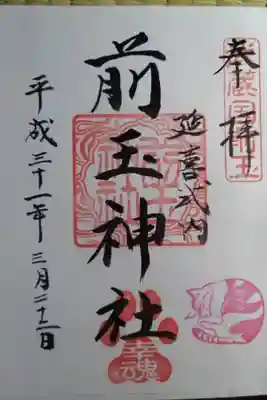 奉拝
延喜式内
前玉神社
幸魂
平成三十一年三月二十二日